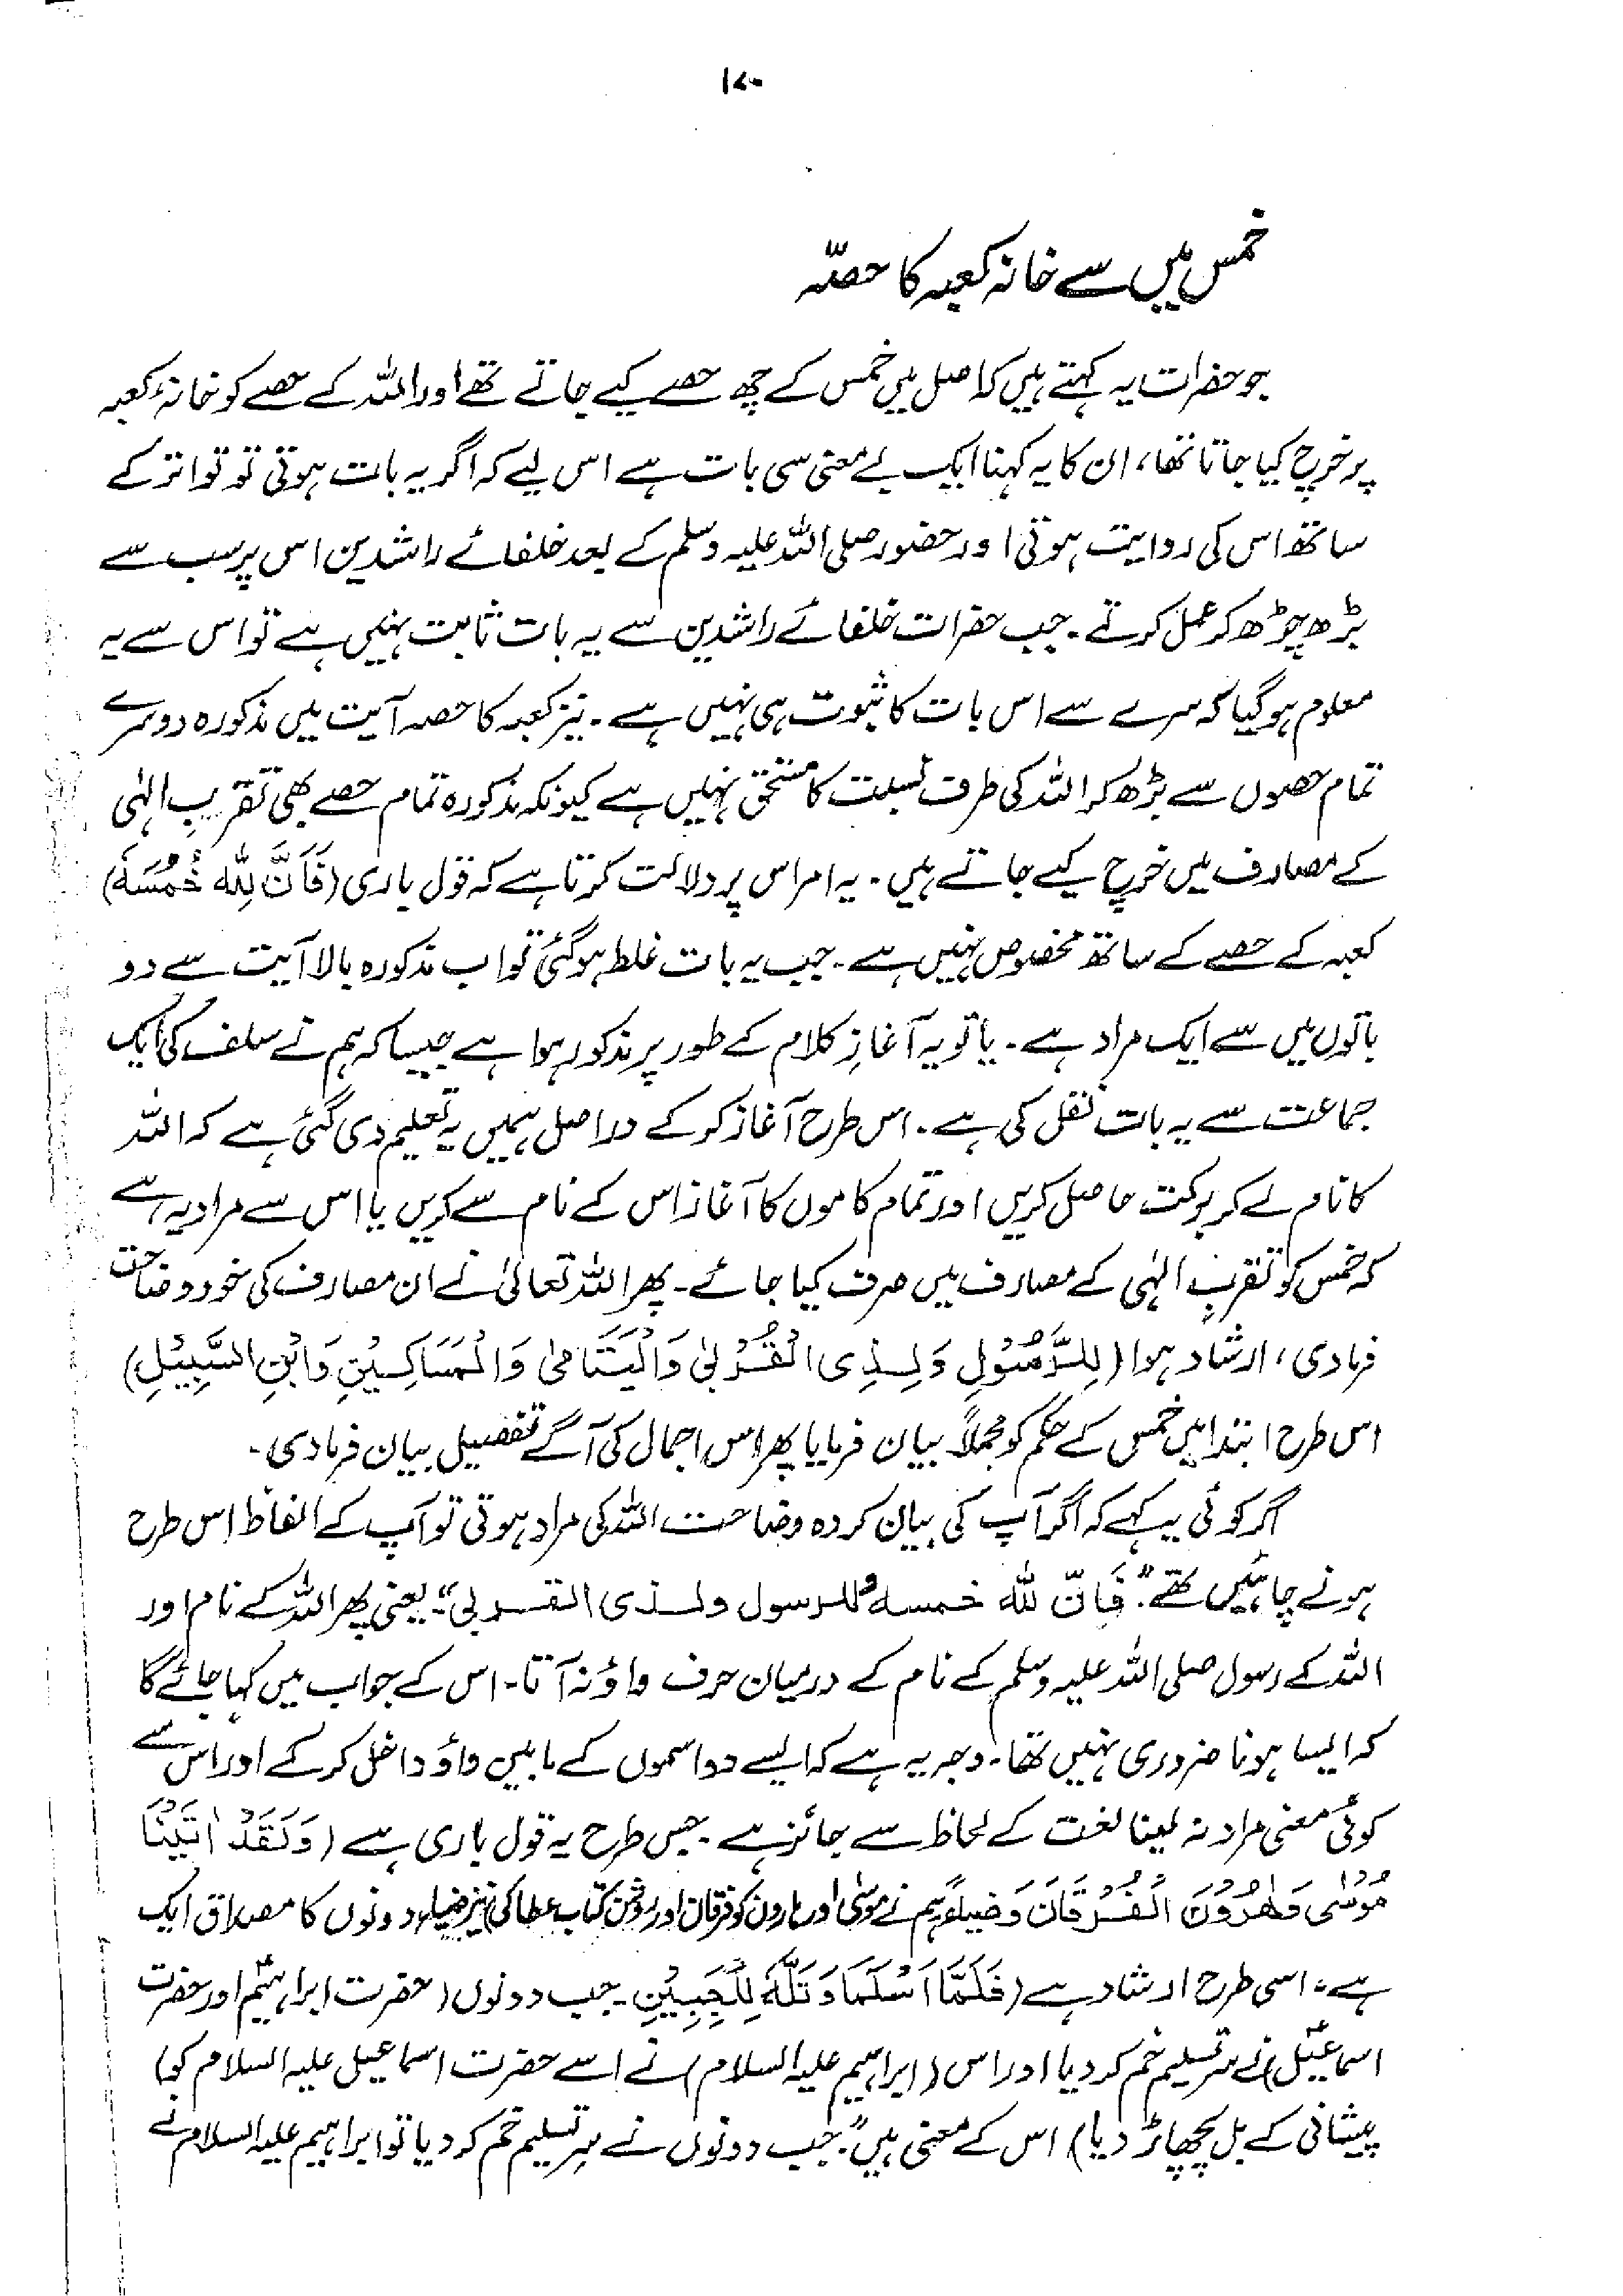 ۱۷۰
خمس میں سے خانہ کعبہ کا حصّہ
جو حضرات یہ کہتے ہیں کہ اصل میں خمس کے چھ حصے کیے جاتے تھے اور اللہ کے حصے کو خانۂ کعبہ
پر خرچ کیا جاتا تھا، ان کا یہ کہنا ایک بے معنی سی بات ہے اس لیے کہ اگر یہ بات ہوتی تو تواتر کے
ساتھ اس کی روایت ہوتی اور حضور صلی اللہ علیہ وسلم کے بعد خلفائے راشدین اس پر سب سے
بڑھ چڑھ کر عمل کرتے۔ جب حضرات خلفائے راشدین سے یہ بات ثابت نہیں ہے تو اس سے یہ
معلوم ہو گیا کہ سرے سے اس بات کا ثبوت ہی نہیں ہے۔ نیز کعبہ کا حصہ آیت میں مذکورہ دوسرے
تمام حصوں سے بڑھ کر اللہ کی طرف نسبت کا مستحق نہیں ہے کیونکہ مذکورہ تمام حصے بھی تقربِ الٰہی
کے مصارف میں خرچ کیے جاتے ہیں۔ یہ امر اس پر دلالت کرتا ہے کہ قول باری (فَاَنَّ لِلّٰہِ خُمُسَہٗ)
کعبہ کے حصے کے ساتھ مخصوص نہیں ہے۔ جب یہ بات غلط ہو گئی تو اب مذکورہ بالا آیت سے دو
باتوں میں سے ایک مراد ہے۔ یا تو یہ آغازِ کلام کے طور پر مذکور ہوا ہے جیسا کہ ہم نے سلف کی ایک
جماعت سے یہ بات نقل کی ہے۔ اس طرح آغاز کر کے دراصل ہمیں یہ تعلیم دی گئی ہے کہ اللہ
کا نام لے کر برکت حاصل کریں اور تمام کاموں کا آغاز اس کے نام سے کریں یا اس سے مراد یہ ہے
کہ خمس کو تقربِ الٰہی کے مصارف میں صرف کیا جائے۔ پھر اللہ تعالیٰ نے ان مصارف کی خود وضاحت
فرما دی، ارشاد ہوا (لِلرَّسُوْلِ وَلِذِی الْقُرْبٰی وَالْیَتَامٰی وَالْمَسَاکِیْنِ وَابْنِ السَّبِیْلِ)
اس طرح ابتدا میں خمس کے حکم کو مجملاً بیان فرمایا پھر اس اجمال کی آگے تفصیل بیان فرما دی۔
اگر کوئی یہ کہے کہ اگر آپ کی بیان کردہ وضاحت اللہ کی مراد ہوتی تو آپ کے الفاظ اس طرح
ہونے چاہئیں تھے "فَاَنّ للہ خمسہ للرسول ولذی القربی" یعنی پھر اللہ کے نام اور
اللہ کے رسول صلی اللہ علیہ وسلم کے نام کے درمیان حرف واؤ نہ آتا۔ اس کے جواب میں کہا جائے گا
کہ ایسا ہونا ضروری نہیں تھا۔ وجہ یہ ہے کہ ایسے دو اسموں کے مابین واؤ داخل کر کے اور اس سے
کوئی معنی مراد نہ لینا لغت کے لحاظ سے جائز ہے۔ جس طرح یہ قول باری ہے (وَلَقَدْ اٰتَیْنَا
مُوْسٰی وَھٰرُوْنَ الْفُرْقَانَ وَضِیَاءً ہم نے موسٰی اور ہارون کو فرقان اور روشن کتاب عطا کی) نیز ضیاء دونوں کا مصداق ایک
ہے، اسی طرح ارشاد ہے (فَلَمَّا اَسْلَمَا وَتَلَّہٗ لِلْجَبِیْنِ۔ جب دونوں (حضرت ابراہیمؑ اور حضرت
اسماعیلؑ) نے سرتسلیم خم کر دیا اور اس (ابراہیم علیہ السلام) نے اسے حضرت اسماعیل علیہ السلام کو)
پیشانی کے بل پچھاڑ دیا) اس کے معنی ہیں "جب دونوں نے سرِ تسلیم خم کر دیا تو ابراہیم علیہ السلام نے